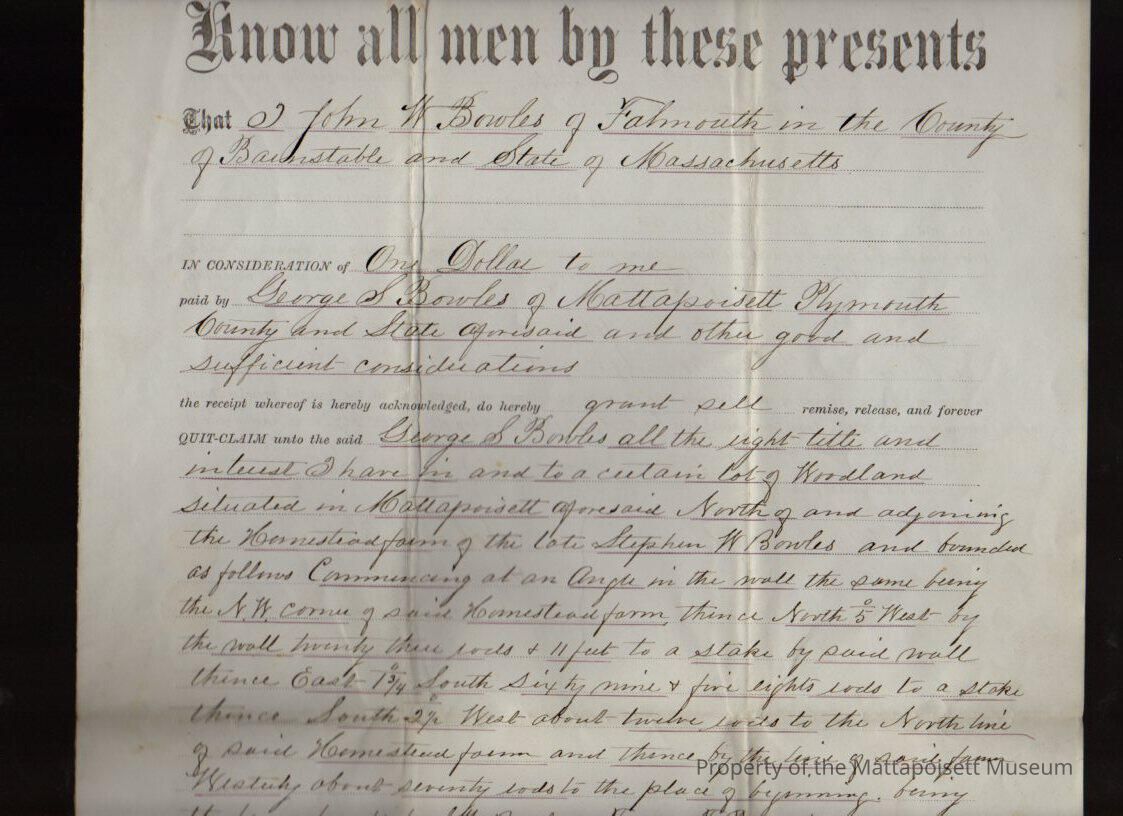 Know all men by these presents
That I John W Bowles of Falmouth in the County
of Barnstable and State of Massachusetts
IN CONSIDERATION of One Dollar to me
paid by George S Bowles of Mattapoisett Plymouth
County and State aforesaid and other good and
sufficient considerations
the receipt whereof is hereby acknowledged, do hereby grant sell remise, release, and forever
QUIT-CLAIM unto the said George S Bowles all the right title and
interest I have in and to a certain lot of Woodland
situated in Mattapoisett aforesaid North of and adjoining
the Homestead farm of the late Stephen W Bowles and bounded
as follows Commencing at an Angle in the wall the same being
the N.W. corner of said Homestead farm, thence North 5° West by
the wall twenty three rods & 11 feet to a stake by said wall
thence East 1°3/4 South sixty nine & five eights rods to a stake
thence South 2°1/2 West about twelve rods to the North line
of said Homestead farm and thence by the line of said farm
Westerly about seventy rods to the place of beginning. being
Property of the Mattapoisett Museum